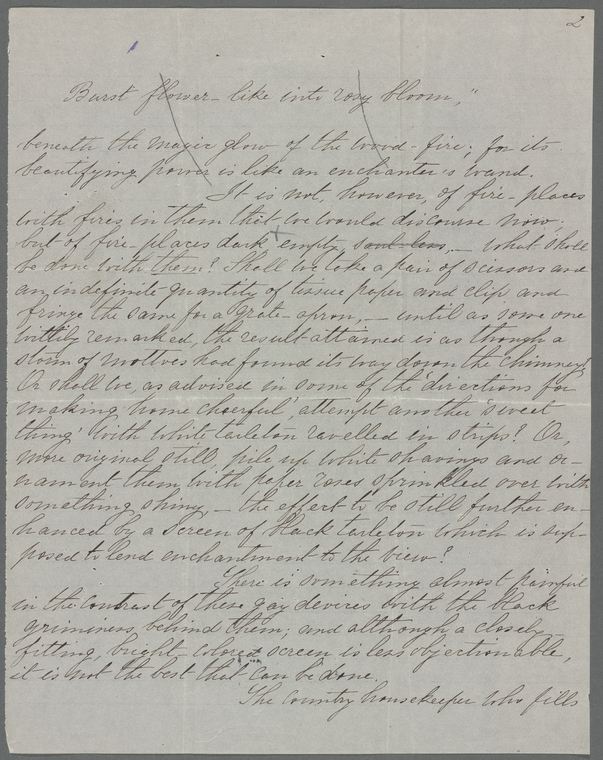 2
Burst flower-like into rosy bloom,"
beneath the magic glow of the wood-fire; for its
beautifying power is like an enchanter's wand.
It is not, however, of fire-places
with fires in them that we would discourse now;
but of fire-places dark + empty, soul-less, — what shall
be done with them? Shall we take a pair of scissors and
an indefinite quantity of tissue paper and clip and
fringe the same for a grate-apron, — until as some one
wittily remarked, the result attained is as though a
storm of mottoes had found its way down the chimney?
Or shall we, as advised in some of the 'directions for
making home cheerful', attempt another 'sweet
thing' with white tarleton ravelled in strips? Or,
more original still, pile up white shavings and or-
nament them with paper roses sprinkled over with
something shiny, — the effect to be still further en-
hanced by a screen of black tarleton which is sup-
posed to lend enchantment to the view?
There is something almost painful
in the contrast of these gay devices with the black
griminess behind them; and although a closely
fitting, bright-colored screen is less objectionable,
it is not the best that can be done.
The country housekeeper who fills